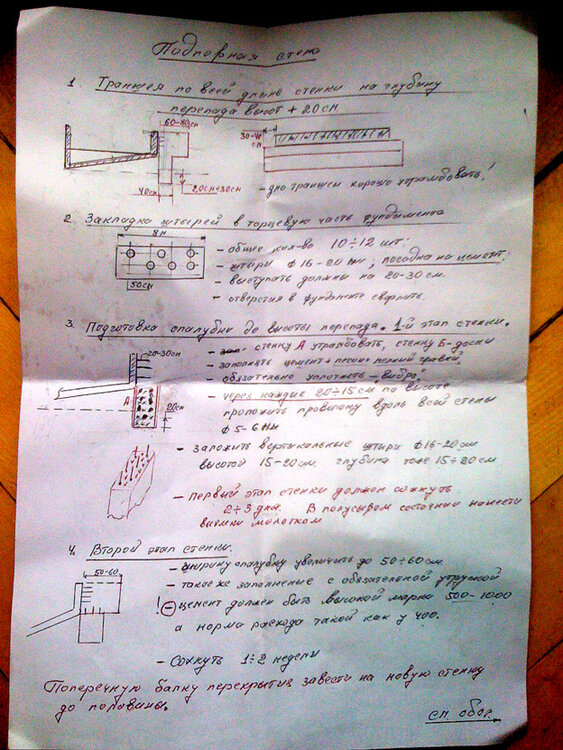 Подпорная стена
1. Траншея по всей длине стенки на глубину
перепада высот + 20 см
60-80см
30-40
см
40см
20см÷30см
- дно траншеи хорошо утрамбовать!
2. Закладка штырей в торцевую часть фундамента
8м
50см
- общее кол-во 10÷12 шт.
- штыри ф 16-20 мм, посадка на цемент.
- выступать должны на 20-30 см.
- отверстия в фундаменте сверлить.
3. Подготовка опалубки до высоты перепада. 1-й этап стенки.
20-30см
А
20см
- стенку А утрамбовать, стенку Б - доски
- заполнять цемент + песок + мелкий гравий
- обязательно уплотнять - "вибро"
- через каждые 20÷15 см по высоте
проложить проволоку вдоль всей стены
ф 5-6 мм
- заложить вертикальные штыри ф16-20см
высотой 15-20см. глубина тоже 15÷20 см
- Первый этап стенки должен сохнуть
2÷3 дня. В полусыром состоянии нанести
выемки молотком
4. Второй этап стенки.
50-60
- ширину опалубки увеличить до 50÷60 см.
- такое же заполнение с обязательной утруской
! - цемент должен быть высокой марки 500-1000
а норма расхода такой как у 400.
- Сохнуть 1÷2 недели
Поперечную балку перекрытия завести на новую стенку
до половины.
см. обор.